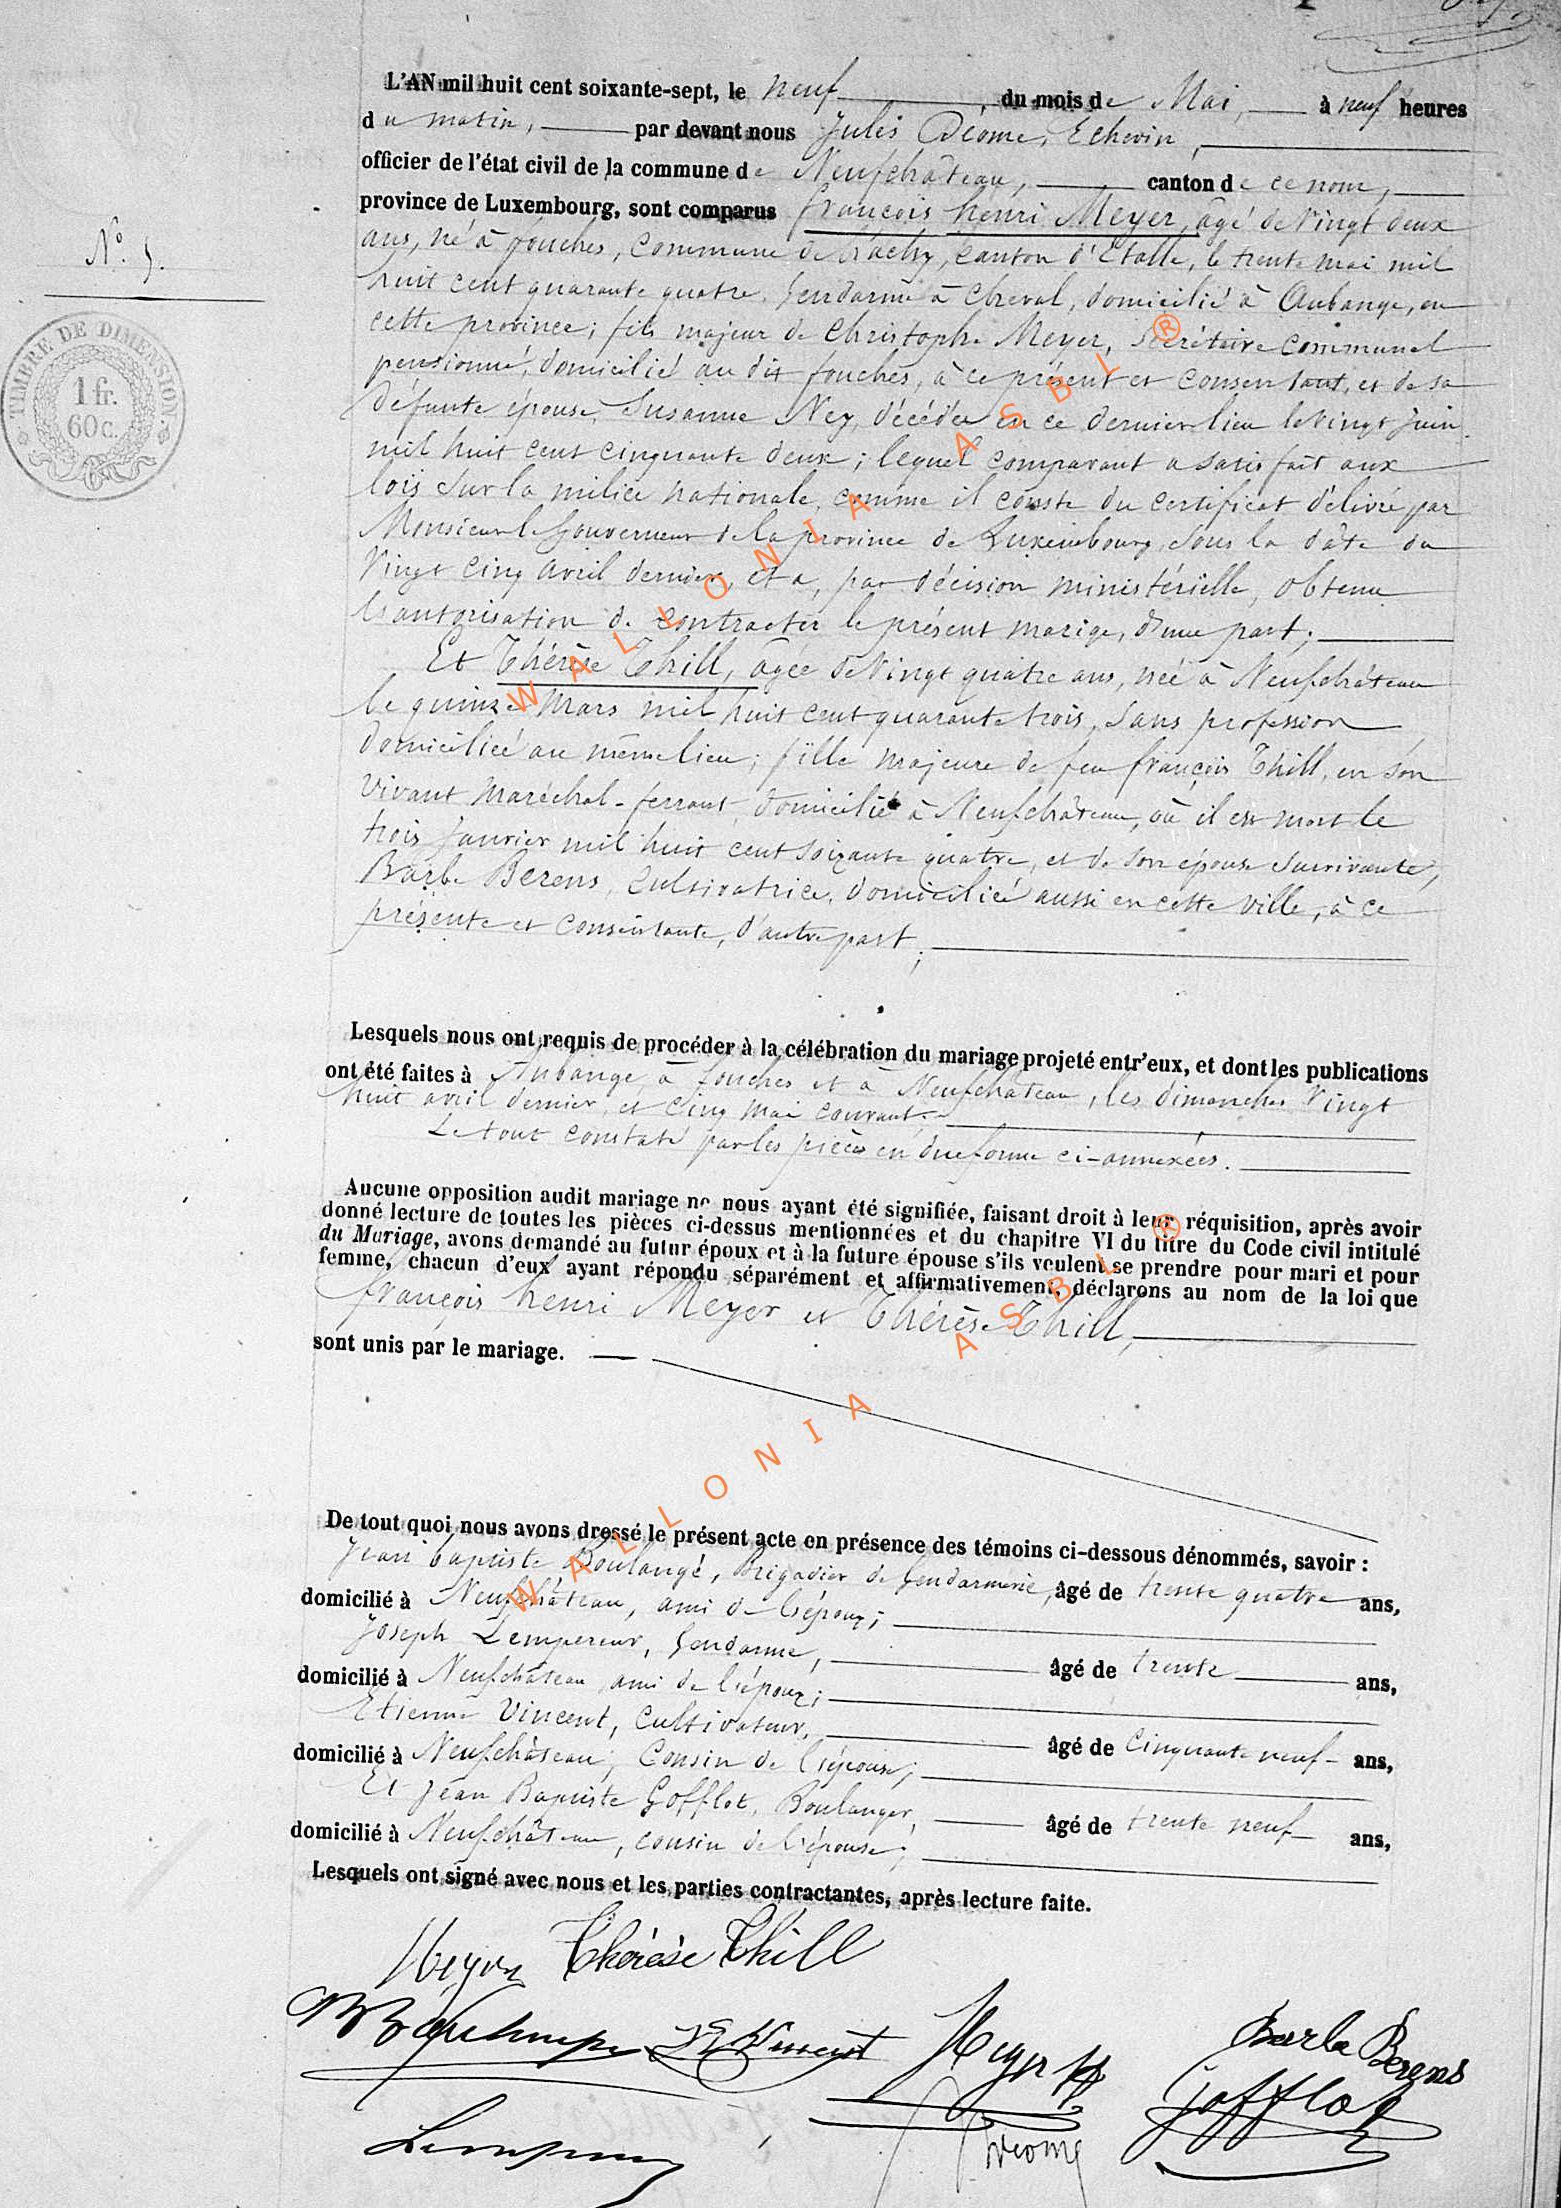 L'AN mil huit cent soixante-sept, le neuf, du mois de Mai, à neuf heures
du matin, par devant nous Jules Déome, Echevin,
officier de l'état civil de la commune de Neufchâteau, canton de ce nom,
province de Luxembourg, sont comparus françois henri Meyer, âgé de Vingt deux
N° 5.
ans, né à fouches, Commune de hachy, Canton d'Etalle, le trente mai mil
huit cent quarante quatre, Gendarme à Cheval, domicilié à Aubange, en
cette province; fils majeur de Christophe Meyer, Secrétaire Communal
pensionné, domicilié au dit fouches, à ce présent et consentant, et de sa
défunte épouse, Susanne Ney, décédée en ce dernier lieu le Vingt Juin
mil huit cent cinquante deux; lequel comparant a satisfait aux
lois sur la milice nationale, comme il conste du certificat délivré par
Monsieur le Gouverneur de la province de Luxembourg, sous la date du
Vingt Cinq Avril dernier, et a, par décision ministérielle, obtenu
l'autorisation de contracter le présent marige, d'une part;
Et Thérèse Thill, âgée de Vingt quatre ans, née à Neufchâteau
le quinze Mars mil huit cent quarante trois, Sans profession
domiciliée au même lieu; fille majeure de feu françois Thill, en son
Vivant Maréchal-ferrant, domicilié à Neufchâteau, où il est mort le
trois Janvier mil huit cent soixante quatre, et de son épouse survivante,
Barbe Berens, Cultivatrice, domiciliée aussi en cette ville, à ce
présente et consentante, d'autre part;
TIMBRE DE DIMENSION.
1 fr.
60 c.
Lesquels nous ont requis de procéder à la célébration du mariage projeté entr'eux, et dont les publications
ont été faites à Aubange, à fouches et à Neufchâteau, les dimanches Vingt
huit avril dernier, et Cinq mai courant.
Le tout constaté par les pièces en due forme ci-annexées.
Aucune opposition audit mariage ne nous ayant été signifiée, faisant droit à leur réquisition, après avoir
donné lecture de toutes les pièces ci-dessus mentionnées et du chapitre VI du titre du Code civil intitulé
du Mariage, avons demandé au futur époux et à la future épouse s'ils veulent se prendre pour mari et pour
femme, chacun d'eux ayant répondu séparément et affirmativement, déclarons au nom de la loi que
françois henri Meyer et Thérèse Thill,
sont unis par le mariage.
De tout quoi nous avons dressé le présent acte en présence des témoins ci-dessous dénommés, savoir :
Jean baptiste Boulangé, Brigadier de Gendarmerie, âgé de trente quatre ans,
domicilié à Neufchâteau, ami de l'époux;
Joseph Lempereur, Gendarme, âgé de trente ans,
domicilié à Neufchâteau ami de l'époux;
Etienne Vincent, Cultivateur, âgé de Cinquante neuf ans,
domicilié à Neufchâteau, Cousin de l'épouse;
Et Jean Baptiste Gofflot, Boulanger, âgé de trente neuf ans,
domicilié à Neufchâteau, cousin de l'épouse;
Lesquels ont signé avec nous et les parties contractantes, après lecture faite.
Meyer Thérèse Thill
Vincent Meyer Barbe Berens
Gofflot
Déome
WALLONIA ASBL ®
WALLONIA ASBL ®